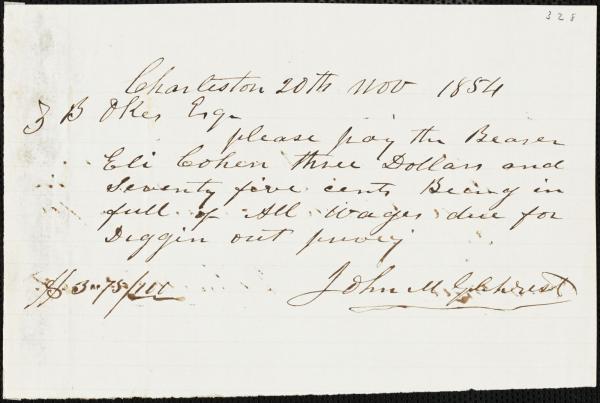 328
Charleston 20th Nov 1854
Z B Okes Esq
please pay the Bearer
Eli Cohen three Dollars and
Seventy five cents Being in
full of All Wages due for
Diggin out privy
$ 3-75/100
John M Gilchrist